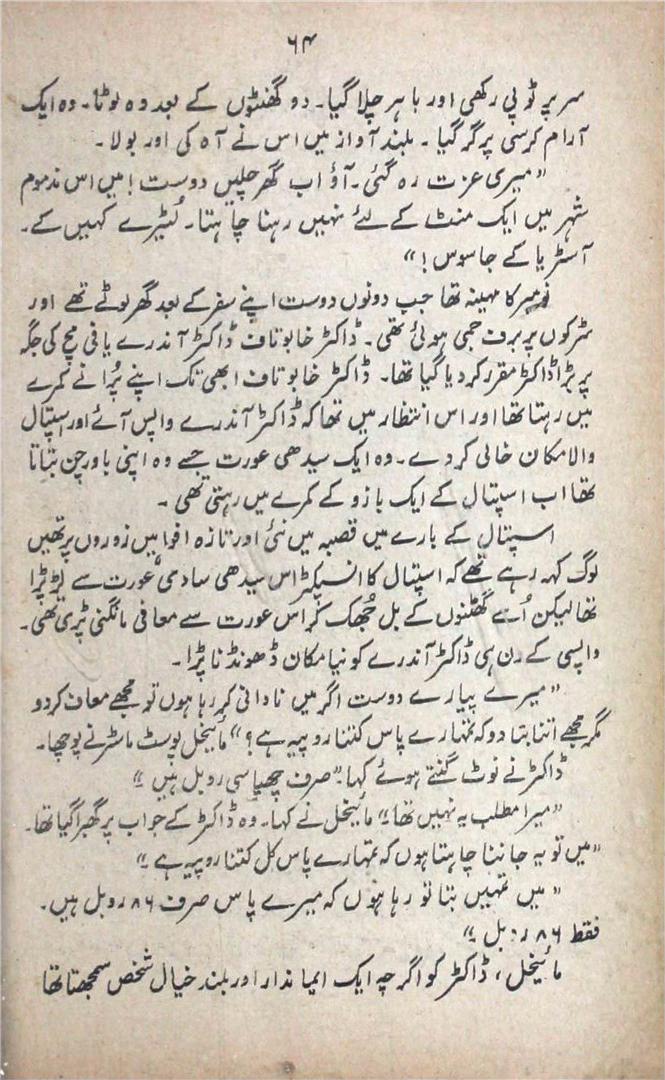 ۶۴
سر پر ٹوپی رکھی اور باہر چلا گیا۔ دو گھنٹوں کے بعد وہ لوٹا۔ وہ ایک
آرام کرسی پر گر گیا۔ بلند آواز میں اس نے آہ کی اور بولا۔
"میری عزت رہ گئی۔ آؤ اب گھر چلیں دوست! میں اس مذموم
شہر میں ایک منٹ کے لئے نہیں رہنا چاہتا۔ لُٹیرے کہیں کے۔
آسٹریا کے جاسوس!"
نومبر کا مہینہ تھا جب دونوں دوست اپنے سفر کے بعد گھر لوٹے تھے اور
سڑکوں پر برف جمی ہوئی تھی۔ ڈاکٹر خابوتاف ڈاکٹر آندرے یافی مچ کی جگہ
پر بڑا ڈاکٹر مقرر کر دیا گیا تھا۔ ڈاکٹر خابوتاف ابھی تک اپنے پُرانے کمرے
میں رہتا تھا اور اس انتظار میں تھا کہ ڈاکٹر آندرے واپس آئے اور اسپتال
والا مکان خالی کر دے۔ وہ ایک سیدھی عورت جسے وہ اپنی باورچن بتاتا
تھا اب اسپتال کے ایک بازو کے کمرے میں رہتی تھی۔
اسپتال کے بارے میں قصبہ میں نئی اور تازہ افواہیں زوروں پر تھیں
لوگ کہہ رہے تھے کہ اسپتال کا انسپکٹر اس سیدھی سادمی عورت سے لڑ پڑا
تھا لیکن اُسے گھٹنوں کے بل جُھک کر اس عورت سے معافی مانگنی پڑی تھی۔
واپسی کے دن ہی ڈاکٹر آندرے کو نیا مکان ڈھونڈنا پڑا۔
"میرے پیارے دوست اگر میں نادانی کر رہا ہوں تو مجھے معاف کر دو
مگر مجھے اتنا بتا دو کہ تمہارے پاس کتنا روپیہ ہے؟" مائیخل پوسٹ ماسٹر نے پوچھا۔
ڈاکٹر نے نوٹ گنتے ہوئے کہا "صرف چھیاسی روبل ہیں۔"
"میرا مطلب یہ نہیں تھا۔" مائیخل نے کہا۔ وہ ڈاکٹر کے جواب پر گھبرا گیا تھا۔
"میں تو یہ جاننا چاہتا ہوں کہ تمہارے پاس کل کتنا روپیہ ہے۔"
"میں تمہیں بتا تو رہا ہوں کہ میرے پاس صرف ۸۶ روبل ہیں۔
فقط ۸۶ روبل۔"
مائیخل، ڈاکٹر کو اگرچہ ایک ایماندار اور بلند خیال شخص سمجھتا تھا